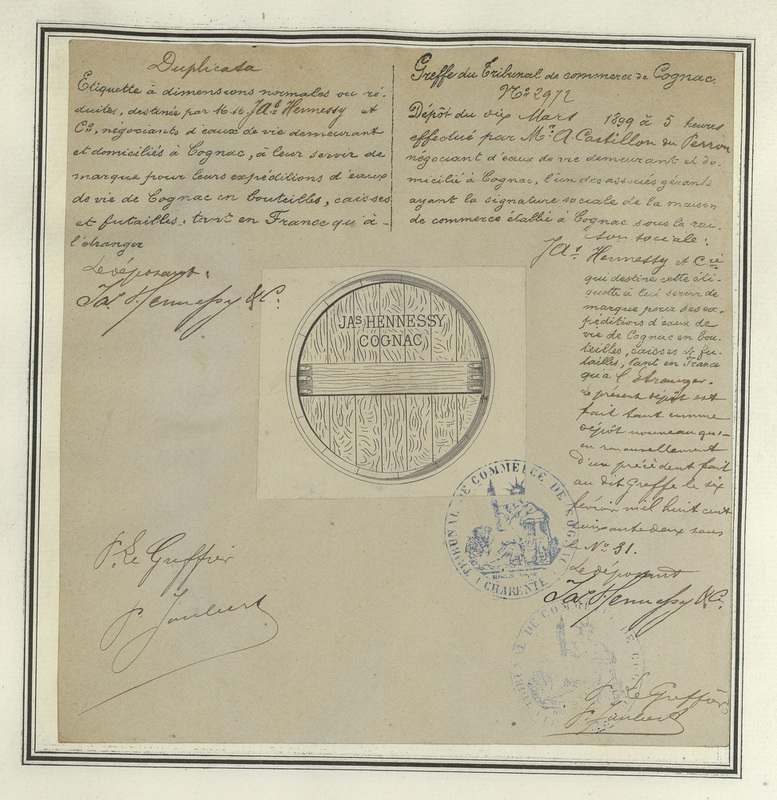 Duplicata
Etiquette à dimensions normales ou ré-
duites, destinée par M.M. Jas Hennessy et
Co, négociants d'eaux de vie demeurant
et domiciliés à Cognac, à leur servir de
marque pour leurs expéditions d'eaux
de vie de Cognac en bouteilles, caisses
et futailles, tant en France qu'à
l'étranger
Le déposant.
Jas Hennessy & Co.
Greffe du Tribunal de commerce de Cognac.
No 2972
Dépôt du dix Mars 1899 à 5 heures
effectué par Mr. A. Castillon du Perron
négociant d'eaux de vie demeurant et do-
micilié à Cognac, l'un des associés gérants
ayant la signature sociale de la maison
de commerce établie à Cognac sous la rai-
son sociale:
Jas Hennessy et Cie
qui destine cette éti-
quette à lui servir de
marque pour ses ex-
péditions d'eaux de
vie de Cognac en bou-
teilles, caisses et fu-
tailles, tant en France
qu'à l'Etranger.
Le présent dépôt est
fait tant comme
dépôt nouveau qu'-
en renouvellement
d'un précédent fait
au dit Greffe le six
février mil huit cent
soixante deux sous
le No 31.
Le déposant
Jas Hennessy & Co.
JAS HENNESSY
COGNAC
TRIBUNAL DE COMMERCE DE COGNAC
(CHARENTE)
P. Le Greffier
P. Jaubert
TRIBUNAL DE COMMERCE DE
P. Le Greffier
P. Jaubert